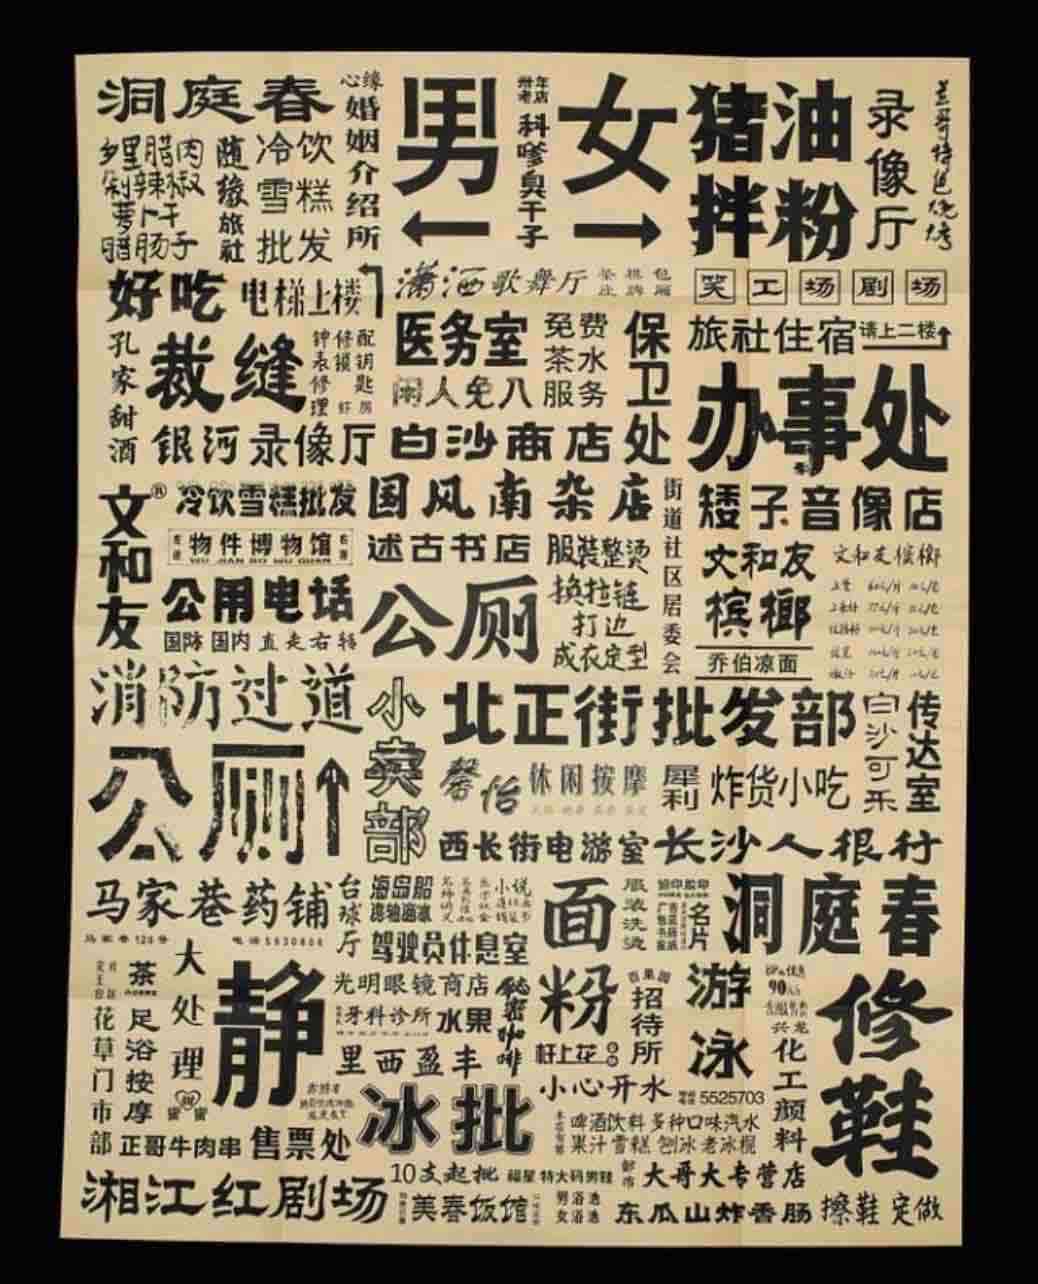 洞庭春
乡里腊肉
剁辣椒
萝卜干
腊肠子
随缘旅社
冷饮
雪糕
批发
心缘
婚姻介绍所
男
←
卅年老店
科嗲臭干子
女
→
猪油
拌粉
录像厅
好吃
电梯上楼
潇洒歌舞厅
茶庄 棋牌 包厢
笑工场剧场
孔家甜酒
裁缝
钟表修理
修锁
配钥匙
医务室
闲人免入
免费
茶水
服务
保卫处
旅社住宿
请上二楼↑
办事处
银河录像厅
白沙商店
文和友®
冷饮雪糕批发
国风南杂店
街道社区居委会
矮子音像店
物件博物馆
WU JIAN BO WU GUAN
述古书店
服装整烫
换拉链
打边
成衣定型
文和友
槟榔
文和友槟榔
公用电话
国际 国内 直走右转
公厕
乔伯凉面
消防过道
小卖部
北正街批发部
白沙可乐
传达室
公厕↑
馨怡
休闲按摩
犀利
炸货小吃
西长街电游室
长沙人很行
马家巷药铺
马家巷120号
电话5630806
台球厅
海岛船
驾驶员休息室
面粉
服装洗烫
名片
洞庭春
花草门市部
茶
足浴按摩
大处理
静
光明眼镜商店
牙科诊所
水果
秘密咖啡
里西盈丰
杆上花
百果园
招待所
游泳
5525703
90
兴龙
化工颜料
修鞋
小心开水
冰批
啤酒饮料 多种口味汽水
果汁雪糕 刨冰老冰棍
蜜蜜
正哥牛肉串
售票处
10支起批
福星 特大码男鞋
大哥大专营店
湘江红剧场
美春饭馆
男浴池
女浴池
东瓜山炸香肠
擦鞋 定做